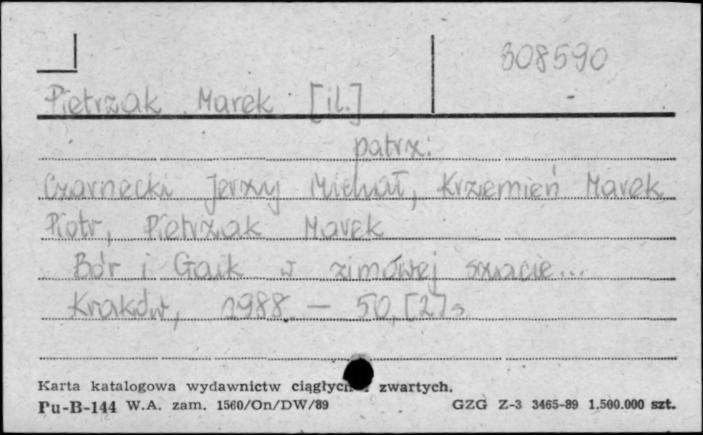 308590
Pietrzak Marek [il.]
patrz:
Czarnecki Jerzy Michał, Krzemień Marek
Piotr, Pietrzak Marek
Bór i Gaik w zimowej szacie...
Kraków, 1988. — 50, [2] s
Karta katalogowa wydawnictw ciągłych zwartych.
Pu-B-144 W.A. zam. 1560/On/DW/89 GZG Z-3 3465-89 1.500.000 szt.